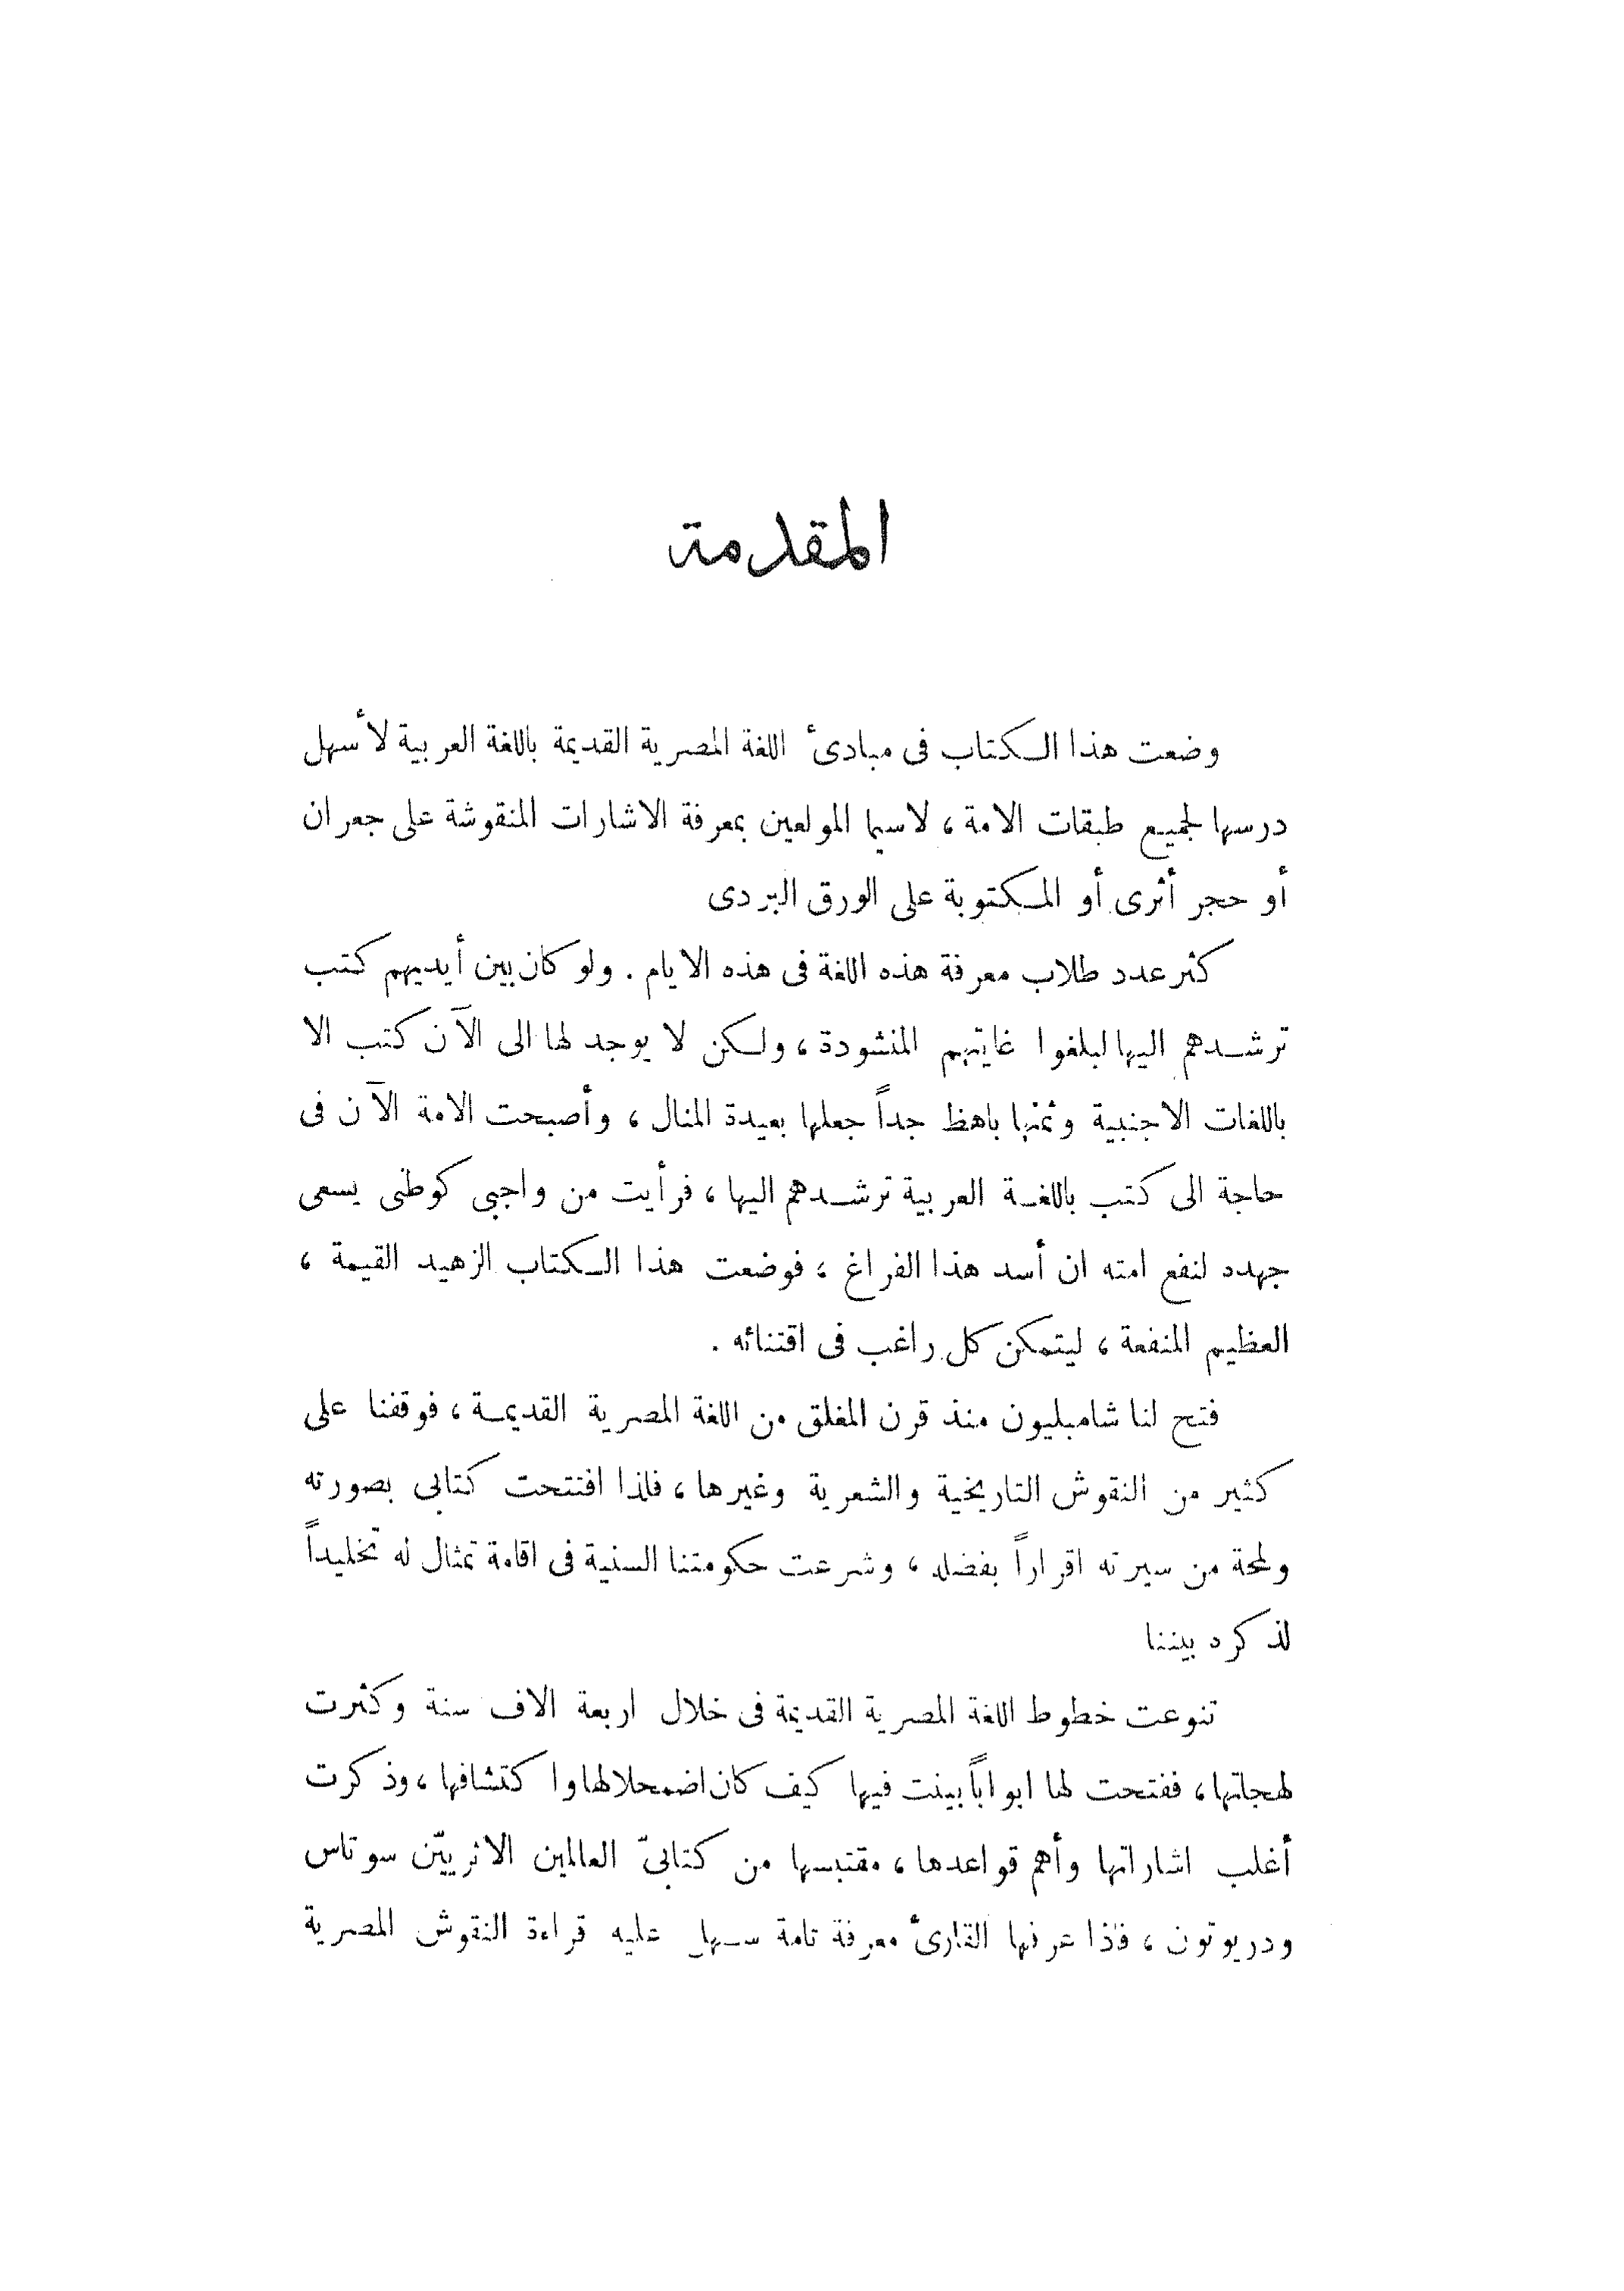 المقدمة
وضعت هذا الكتاب فى مبادىء اللغة المصرية القديمة باللغة العربية لأسهل
درسها لجميع طبقات الامة ، لاسيما المولعين بمعرفة الاشارات المنقوشة على جعران
أو حجر أثرى أو المكتوبة على الورق البردى
كثر عدد طلاب معرفة هذه اللغة فى هذه الايام . ولو كان بين أيديهم كتب
ترشدهم اليها لبلغوا غايتهم المنشودة ، ولكن لا يوجد لها الى الآن كتب الا
باللغات الاجنبية وثمنها باهظ جداً جعلها بعيدة المنال ، وأصبحت الامة الآن فى
حاجة الى كتب باللغة العربية ترشدهم اليها ، فرأيت من واجبى كوطنى يسعى
جهده لنفع امته ان أسد هذا الفراغ ، فوضعت هذا الكتاب الزهيد القيمة ،
العظيم المنفعة ، ليتمكن كل راغب فى اقتنائه .
فتح لنا شامبليون منذ قرن المغلق من اللغة المصرية القديمة ، فوقفنا على
كثير من النقوش التاريخية والشعرية وغيرها ، فلذا افتتحت كتابى بصورته
ولمحة من سيرته اقراراً بفضله ، وشرعت حكومتنا السنية فى اقامة تمثال له تخليداً
لذكره بيننا
تنوعت خطوط اللغة المصرية القديمة فى خلال اربعة الاف سنة وكثرت
لهجاتها ، ففتحت لها ابواباً بينت فيها كيف كان اضمحلالها واكتشافها ، وذكرت
أغلب اشاراتها وأهم قواعدها ، مقتبسها من كتابىّ العالمين الاثريّين سوتاس
ودريوتون ، فاذا عرفها القارئ معرفة تامة سهل عليه قراءة النقوش المصرية